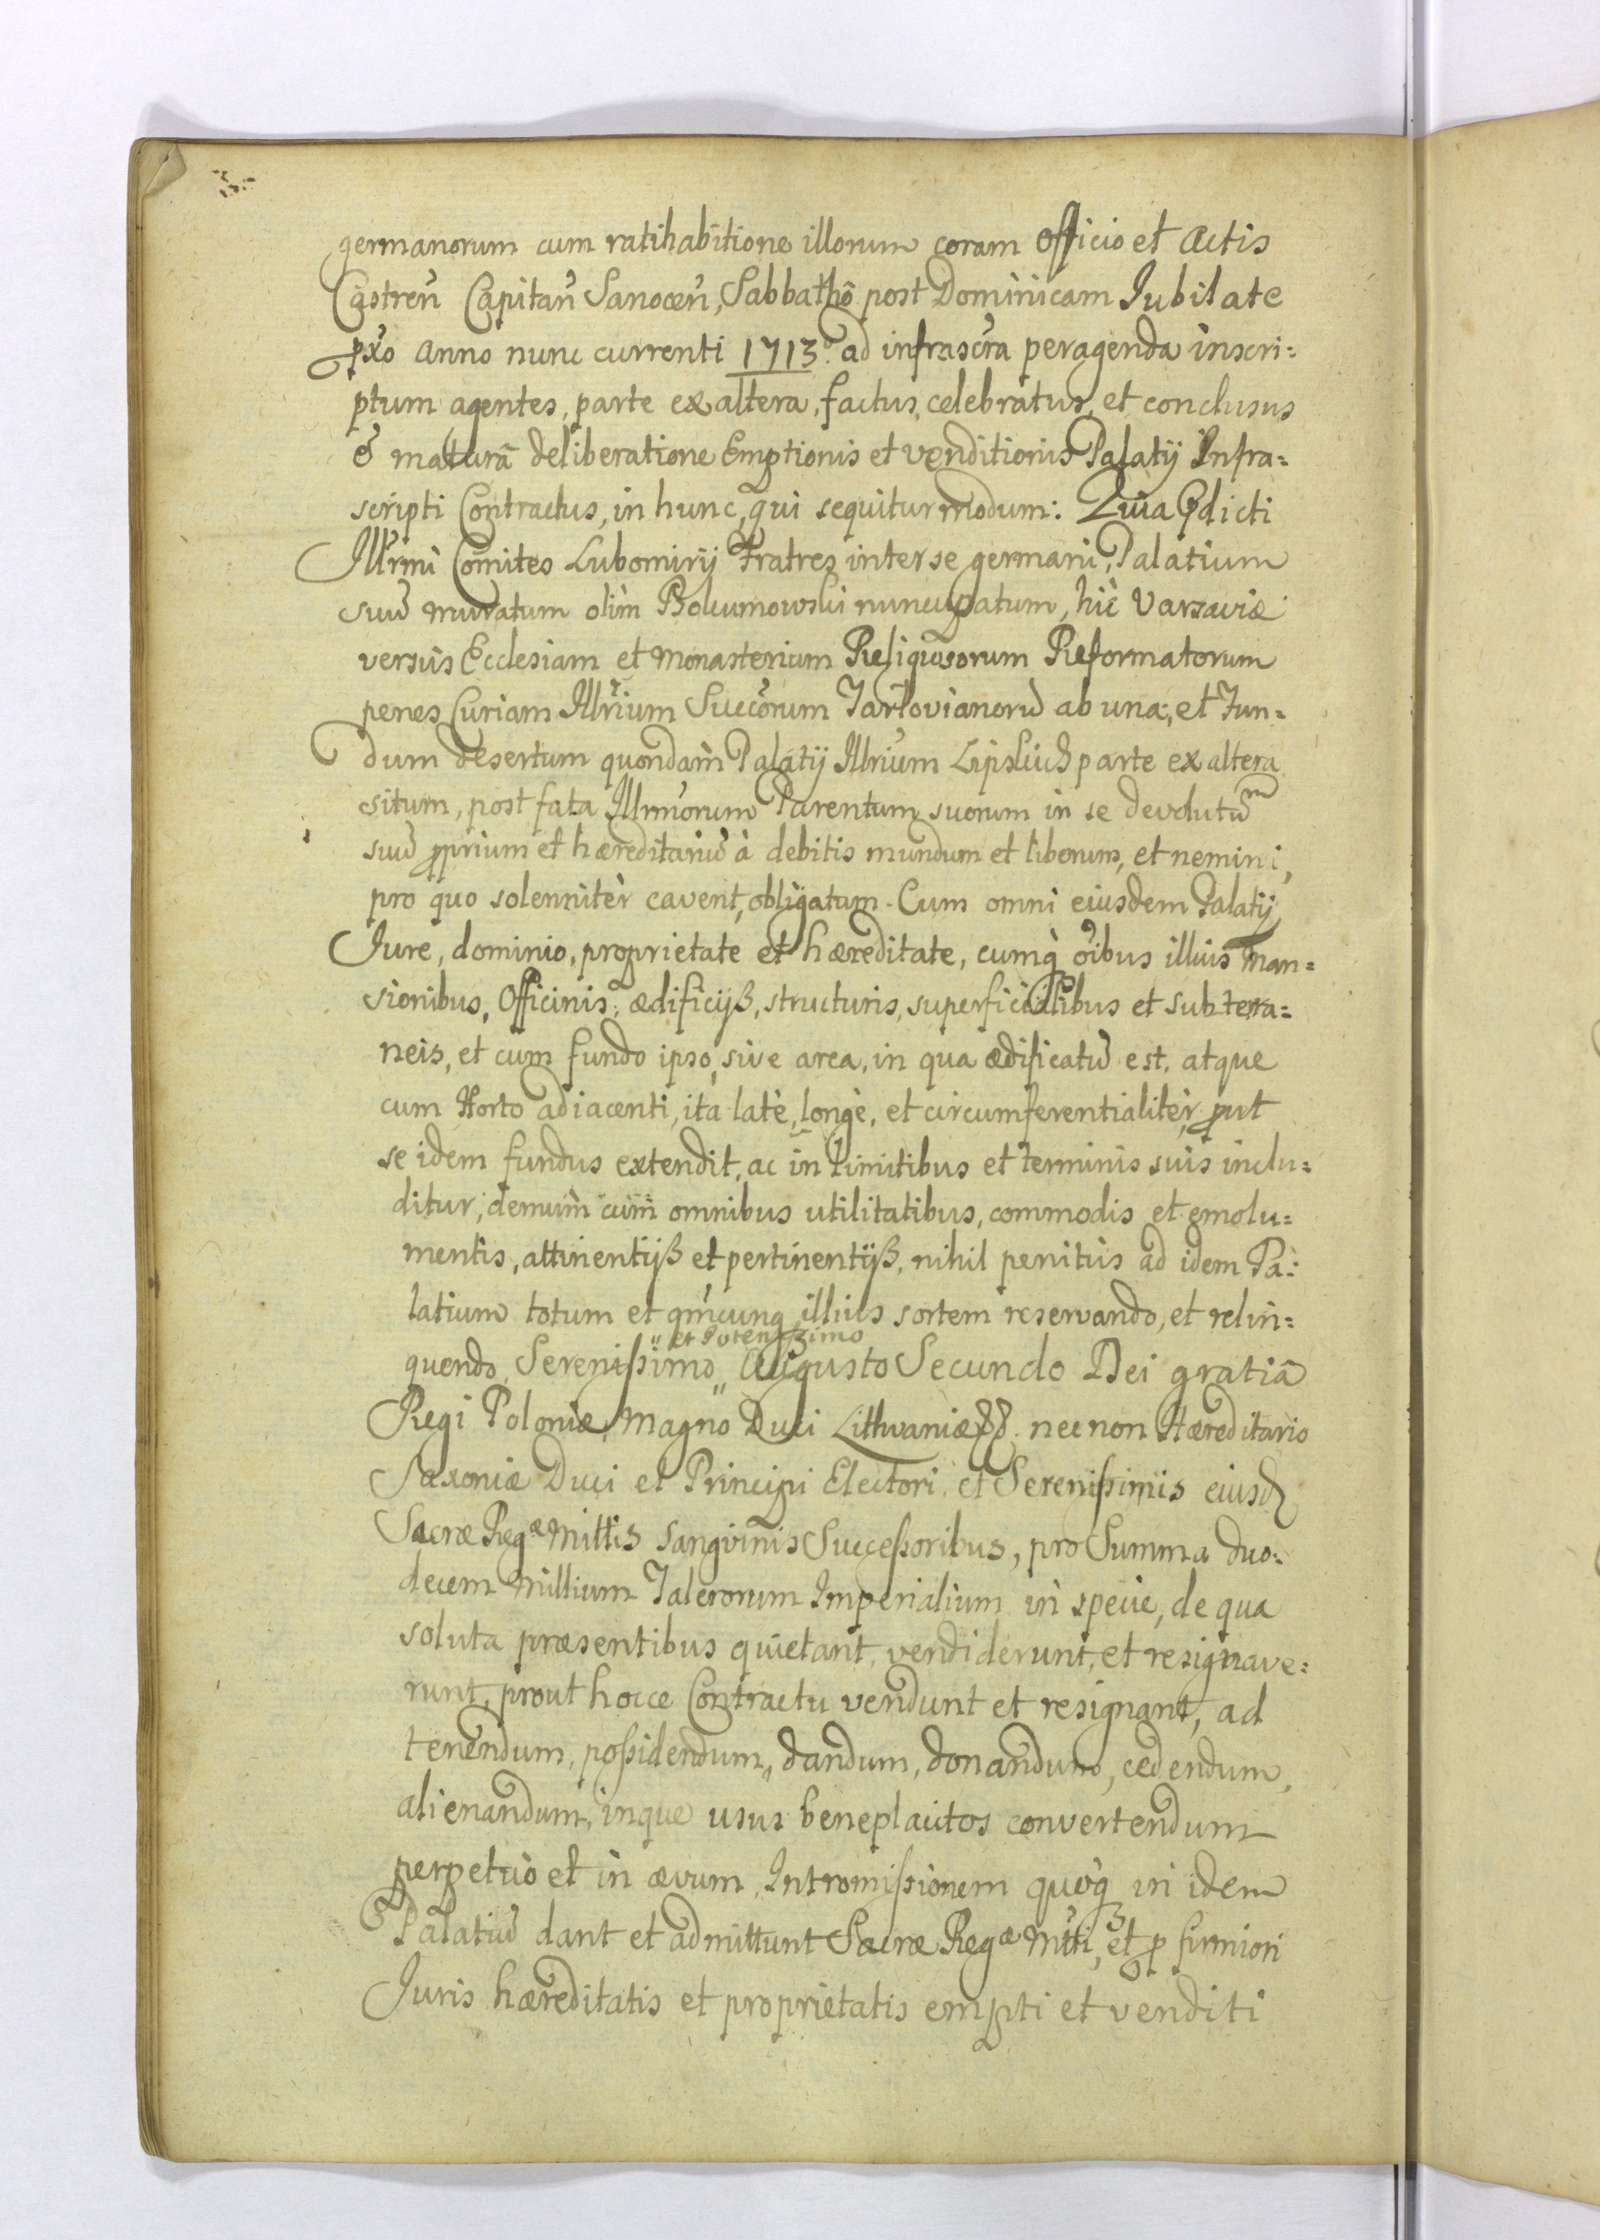 germanorum cum ratihabitione illorum coram Officio et Actis
Castreñ Capitañ Sanoceñ, Sabbathô post Dominicam Jubilate
pxo Anno nunc currenti 1713º ad infrascra peragenda inscri=
ptum agentes, parte ex altera, factus, celebratus, et conclusus
è maturâ deliberatione Emptionis et venditionis Palatij Infra=
scripti Contractus, in hunc, qui sequitur modum: Quia Pdicti
Illrmi Comites Lubomirÿ Fratres inter se germani, Palatium
suũ muratum olìm Bokumowski nuncupatum, hìc Varsaviæ
versùs Ecclesiam et Monasterium Religiosorum Reformatorum
penes Curiam Illrium Succorum Tarlovianorũ ab una, et Fun=
dum desertum quondàm Palatij Illrium Lipskich parte ex altera
situm, post fata Illmorum Parentum suorum in se devolutũm
suũ pprium et hæreditariũ à debitis mundum et liberum, et nemini,
pro quo solennitèr cavent, obligatum. Cum omni eiusdem Palatij
Jure, dominio, proprietate et hæreditate, cumq̀ oibus illius Man=
sionibus, Officinis, ædificijß, structuris, superficialibus et subterra=
neis, et cum fundo ipso, sive area, in qua ædificatũ est, atque
cum Horto adiacenti, ità latè, longè, et circumferentialitèr, put
se idem fundus extendit, ac in limitibus et terminis suis inclu=
ditur, demùm cùm omnibus utilitatibus, commodis et emolu=
mentis, attinentijß et pertinentijß, nihil penitùs ad idem Pa=
latium totum et qmcunq illius sortem reservando, et relin=
et Potentißimo
quendo, Serenißimo" Augusto Secundo Dei gratiâ
Regi Poloniæ, Magno Duci Lithvaniæ nec non Hæreditario
Saxoniæ Duci et Principi Electori, et Serenißimis eiusd
Sacræ Regæ Mittis Sangvinis Succeßoribus, pro Summa duo=
decem Millium Talerorum Imperialium in specie, de qua
soluta præsentibus quietant, vendiderunt, et resignave=
runt, prout hocce Contractu vendunt et resignant, ad
tenendum, poßidendum, dandum, donandum, cedendum,
alienandum, inque usus beneplacitos convertendum
perpetuò et in ævum, Intromißionem quoq̀ in idem
Palatiũ dant et admittunt Sacræ Regæ Mtti, et p firmiori
Juris hæreditatis et proprietatis empti et venditi